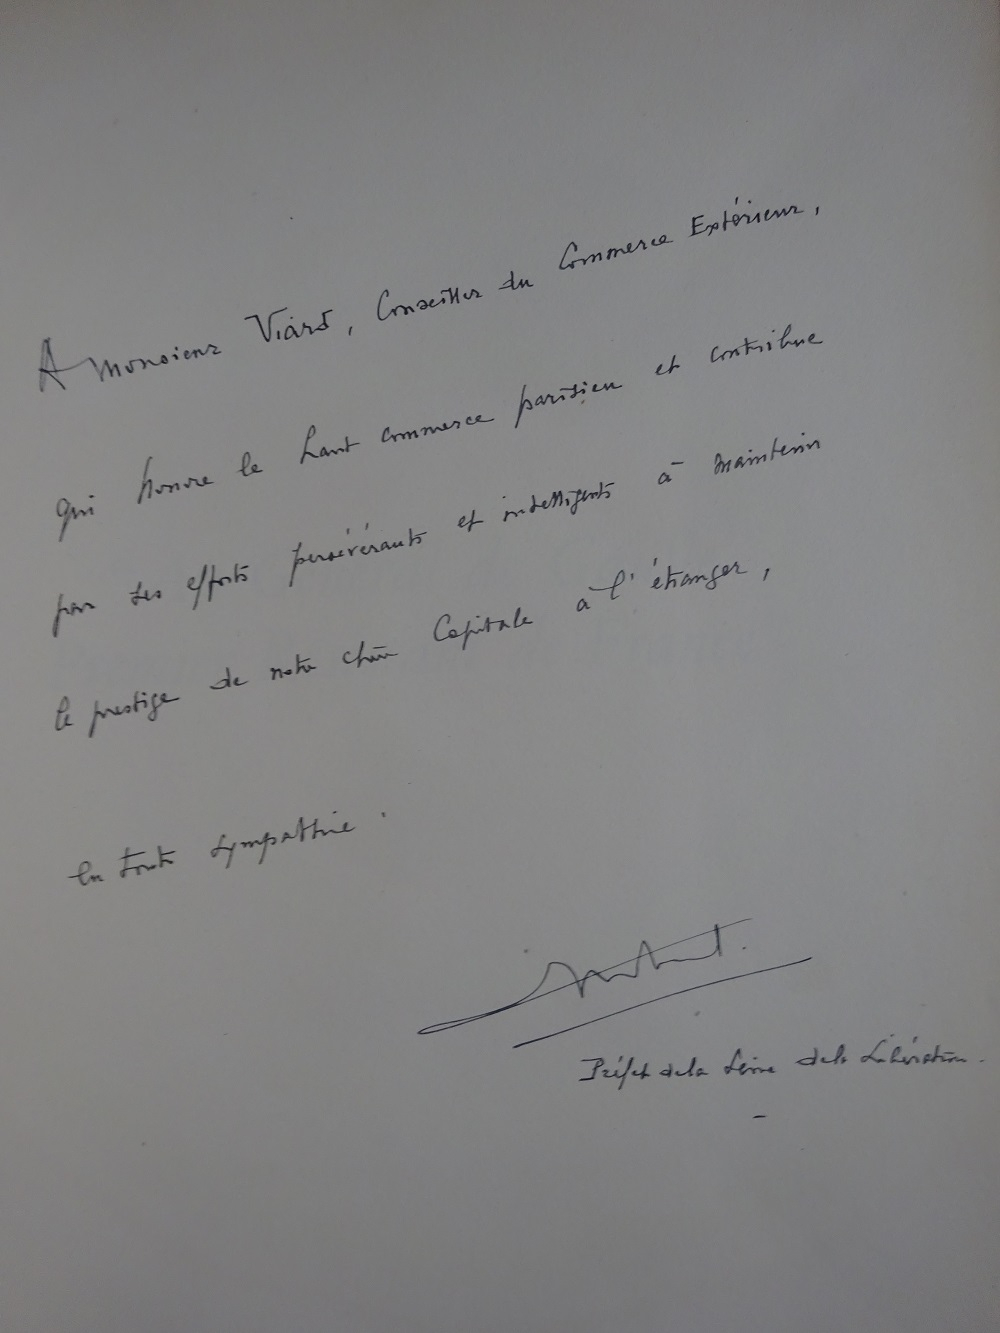 A Monsieur Viard, Conseiller du Commerce Extérieur,
qui honore le haut commerce parisien et contribue
par ses efforts persévérants et intelligents à maintenir
le prestige de notre chère Capitale à l'étranger,
en toute sympathie.
Préfet de la Seine de la Libération.